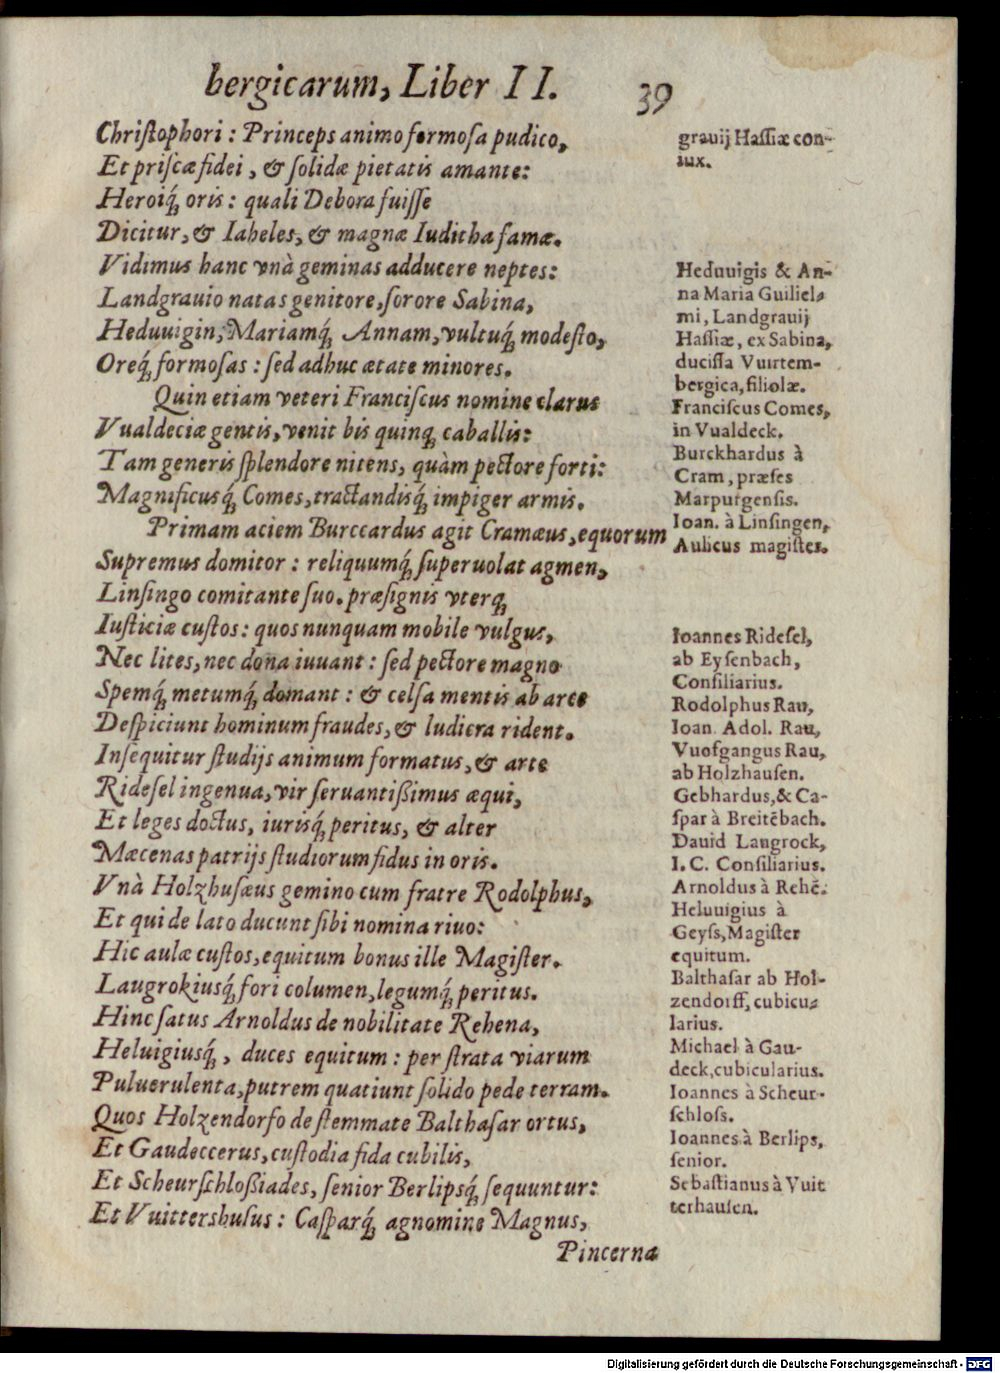 bergicarum, Liber II.
39
Christophori: Princeps animo formosa pudico,
Et priscæ fidei, & solidæ pietatis amante:
Heroiq́ꝫ oris: quali Debora fuisse
Dicitur, & Iaheles, & magnæ Iuditha famæ.
Vidimus hanc vnà geminas adducere neptes:
Landgrauio natas genitore, sorore Sabina,
Heduuigin, Mariamq́ꝫ Annam, vultuq́ꝫ modesto,
Oreq́ꝫ formosas: sed adhuc ætate minores.
Quin etiam veteri Franciscus nomine clarus
Vualdeciæ gentis, venit bis quinqꝫ caballis:
Tam generis splendore nitens, quàm pectore forti:
Magnificusq́ꝫ Comes, tractandisq́ꝫ impiger armis.
Primam aciem Burccardus agit Cramæus, equorum
Supremus domitor: reliquumq́ꝫ superuolat agmen,
Linsingo comitante suo. præsignis vterqꝫ
Iusticiæ custos: quos nunquam mobile vulgus,
Nec lites, nec dona iuuant: sed pectore magno
Spemq́ꝫ metumq́ꝫ domant: & celsa mentis ab arce
Despiciunt hominum fraudes, & ludicra rident.
Insequitur studijs animum formatus, & arte
Ridesel ingenua, vir seruantißimus æqui,
Et leges doctus, iurisq́ꝫ peritus, & alter
Mæcenas patrijs studiorum fidus in oris.
Vnà Holzhusæus gemino cum fratre Rodolphus,
Et qui de lato ducunt sibi nomina riuo:
Hic aulæ custos, equitum bonus ille Magister.
Laugrokiusq́ꝫ fori columen, legumq́ꝫ peritus.
Hinc satus Arnoldus de nobilitate Rehena,
Heluigiusq́ꝫ, duces equitum: per strata viarum
Puluerulenta, putrem quatiunt solido pede terram.
Quos Holzendorfo de stemmate Balthasar ortus,
Et Gaudeccerus, custodia fida cubilis,
Et Scheurschloßiades, senior Berlipsq́ꝫ sequuntur:
Et Vuittershusus: Casparq́ꝫ agnomine Magnus,
Pincerna
grauij Hassiæ con-
iux.
Heduuigis & An-
na Maria Guiliel-
mi, Landgrauij
Hassiæ, ex Sabina,
ducissa Vuirtem-
bergica, filiolæ.
Franciscus Comes,
in Vualdeck.
Burckhardus à
Cram, præses
Marpurgensis.
Ioan. à Linsingen,
Aulicus magister.
Ioannes Ridesel,
ab Eysenbach,
Consiliarius.
Rodolphus Rau,
Ioan. Adol. Rau,
Vuofgangus Rau,
ab Holzhausen.
Gebhardus, & Ca-
spar à Breitēbach.
Dauid Laugrock,
I. C. Consiliarius.
Arnoldus à Rehē.
Heluuigius à
Geyss, Magister
equitum.
Balthasar ab Hol-
zendorff, cubicu-
larius.
Michael à Gau-
deck, cubicularius.
Ioannes à Scheur-
schloss.
Ioannes à Berlips,
senior.
Sebastianus à Vuit
terhausen.
Digitalisierung gefördert durch die Deutsche Forschungsgemeinschaft - DFG